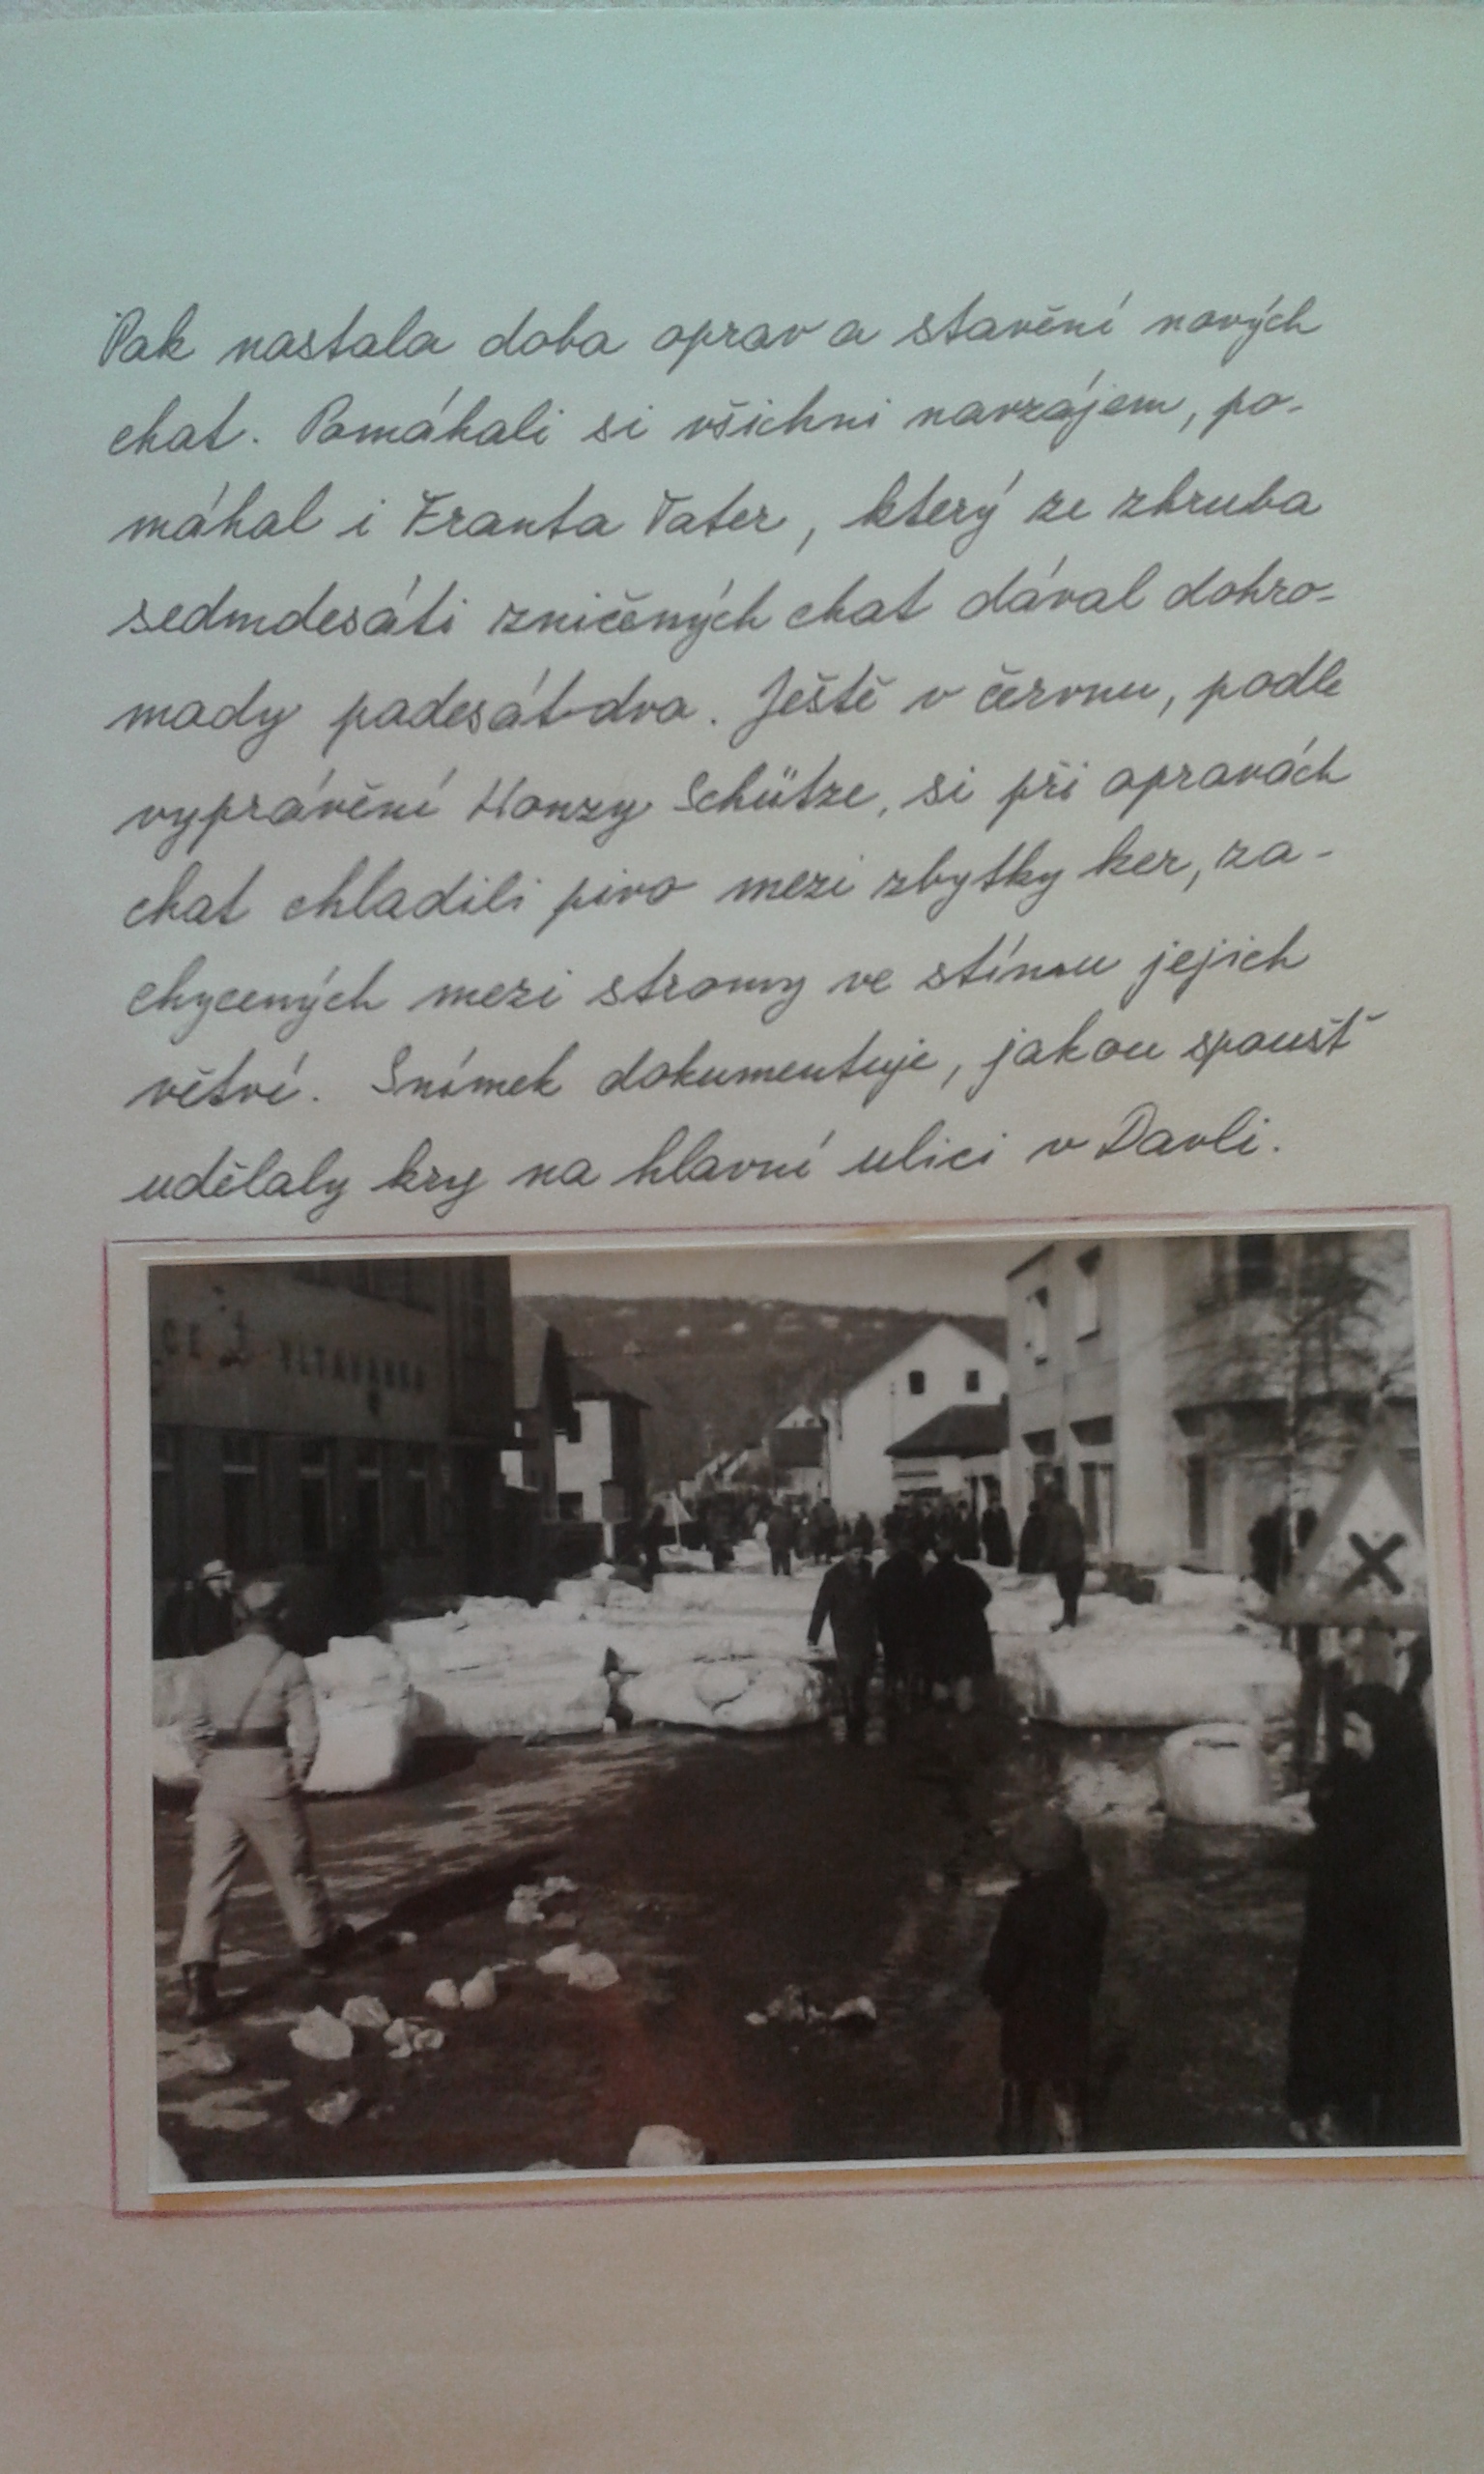 Pak nastala doba oprav a stavění nových
chat. Pomáhali si všichni navzájem, po-
máhal i Franta Tater, který ze zhruba
sedmdesáti zničených chat dával dohro-
mady padesát dva. Ještě v červnu, podle
vyprávění Honzy Schütze, si při opravách
chat chladili pivo mezi zbytky ker, za-
chycených mezi stromy ve stínu jejich
větví. Snímek dokumentuje, jakou spoušť
udělaly kry na hlavní ulici v Davli.
VLTAVANKA